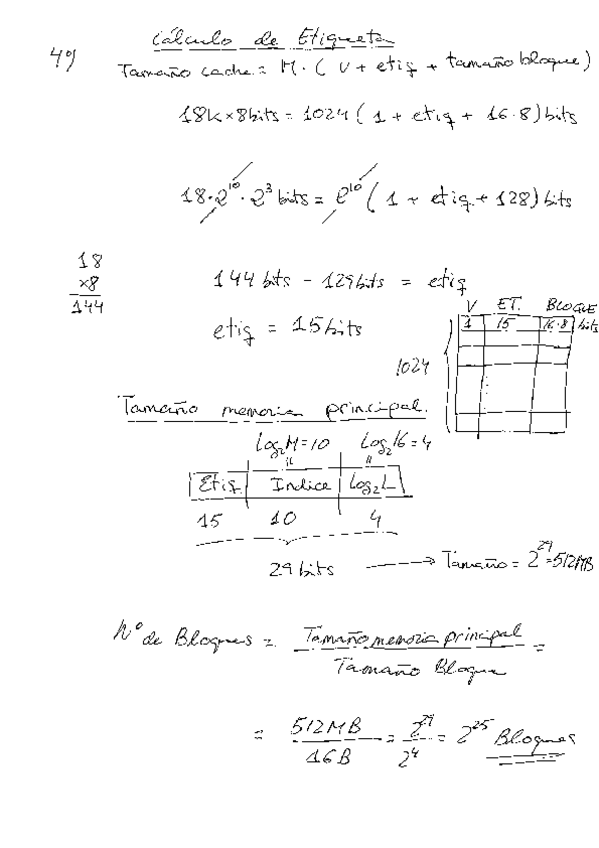 Cálculo de Etiqueta
4º)
Tamaño cache = M · ( V + etiq + tamaño bloque)
18K x 8bits = 1024 ( 1 + etiq + 16·8) bits
18·2^10 · 2^3 bits = 2^10 ( 1 + etiq + 128) bits
18
x8
144
144 bits - 129bits = etiq
etiq = 15 bits
V ET. BLOQUE
1 15 16·8 bits
1024
Tamaño memoria principal.
Log₂M=10 Log₂16=4
Etiq Indice Log₂L
15 10 4
29 bits → Tamaño = 2^29 = 512MB
Nº de Bloques = Tamaño memoria principal =
Tamaño Bloque
= 512MB = 2^29 = 2^25 Bloques
16B 2^4